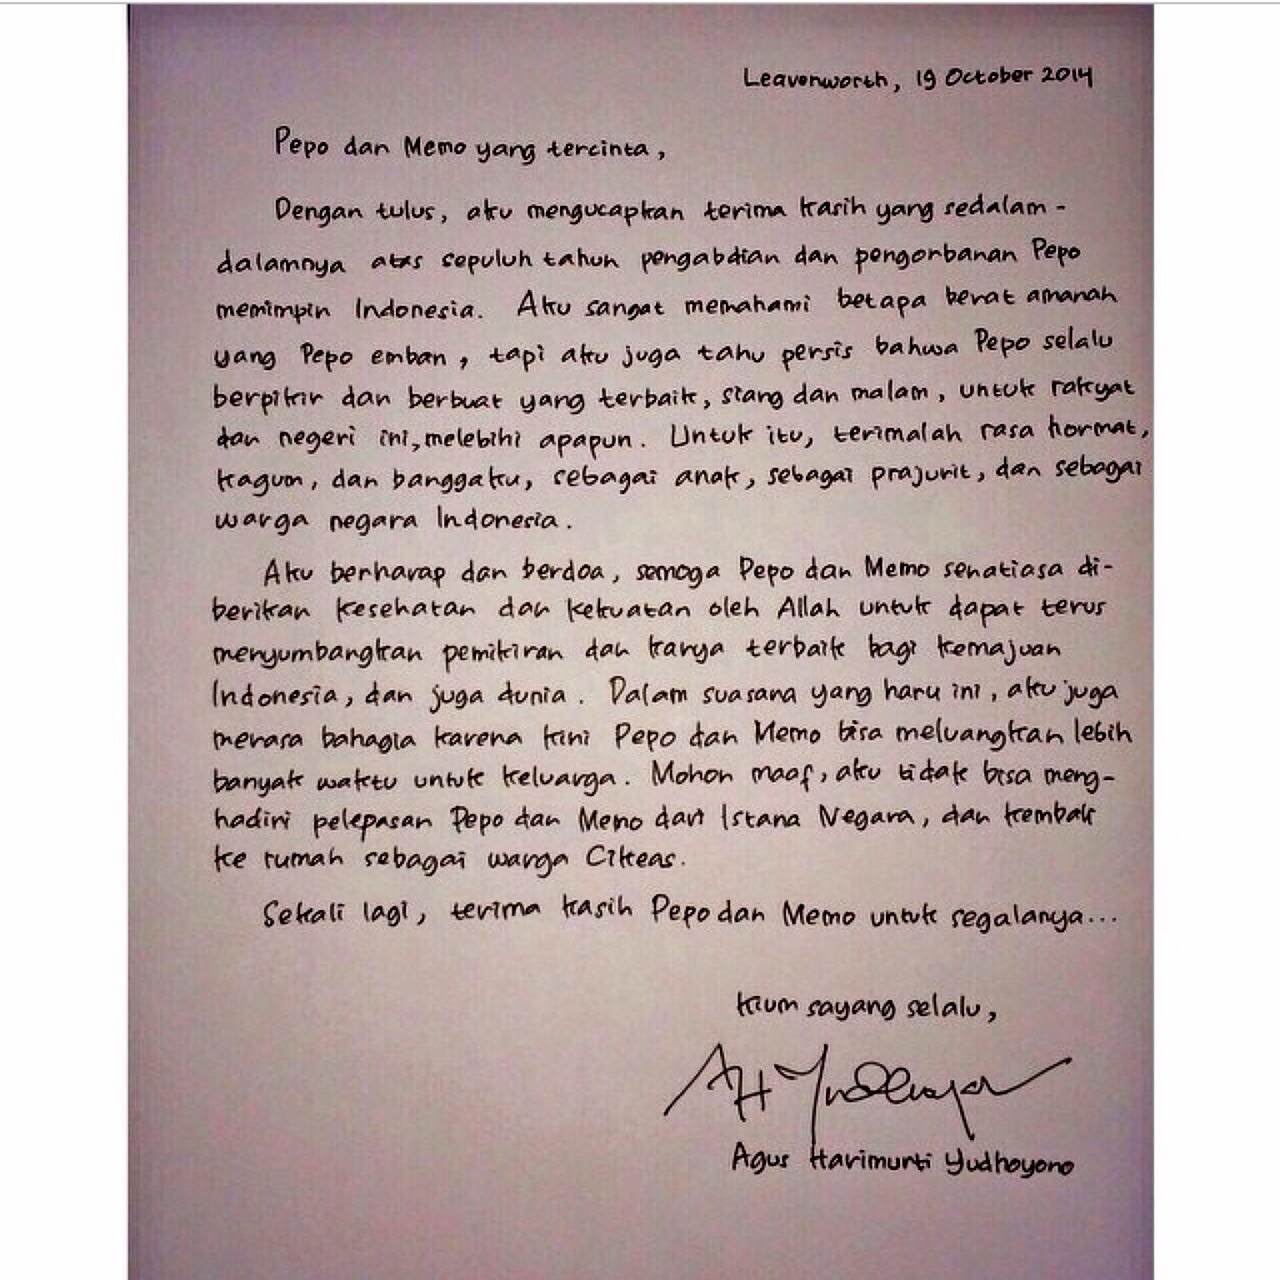 Leavenworth, 19 October 2014
Pepo dan Memo yang tercinta,
Dengan tulus, aku mengucapkan terima kasih yang sedalam-
dalamnya atas sepuluh tahun pengabdian dan pengorbanan Pepo
memimpin Indonesia. Aku sangat memahami betapa berat amanah
yang Pepo emban, tapi aku juga tahu persis bahwa Pepo selalu
berpikir dan berbuat yang terbaik, siang dan malam, untuk rakyat
dan negeri ini, melebihi apapun. Untuk itu, terimalah rasa hormat,
kagum, dan banggaku, sebagai anak, sebagai prajurit, dan sebagai
warga negara Indonesia.
Aku berharap dan berdoa, semoga Pepo dan Memo senatiasa di-
berikan kesehatan dan kekuatan oleh Allah untuk dapat terus
menyumbangkan pemikiran dan karya terbaik bagi kemajuan
Indonesia, dan juga dunia. Dalam suasana yang haru ini, aku juga
merasa bahagia karena kini Pepo dan Memo bisa meluangkan lebih
banyak waktu untuk keluarga. Mohon maaf, aku tidak bisa meng-
hadiri pelepasan Pepo dan Memo dari Istana Negara, dan kembali
ke rumah sebagai warga Cikeas.
Sekali lagi, terima kasih Pepo dan Memo untuk segalanya...
Kium sayang selalu,
AH Yudhoyono
Agus Harimurti Yudhoyono